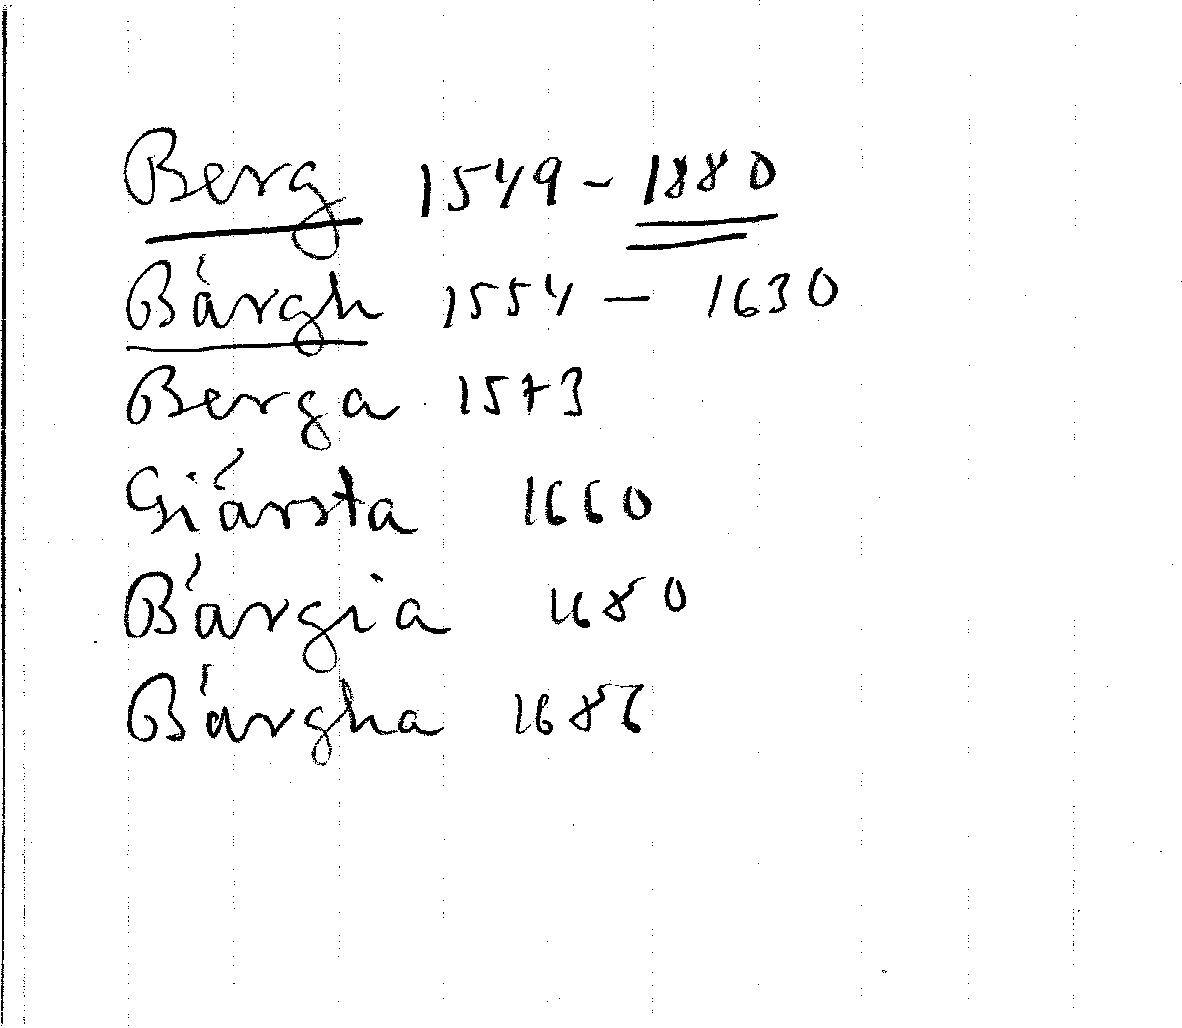 Berg 1549 - 1880
Bárgh 1554 - 1630
Berga 1573
Giársta 1660
Bárgia 1680
Bárgha 1686